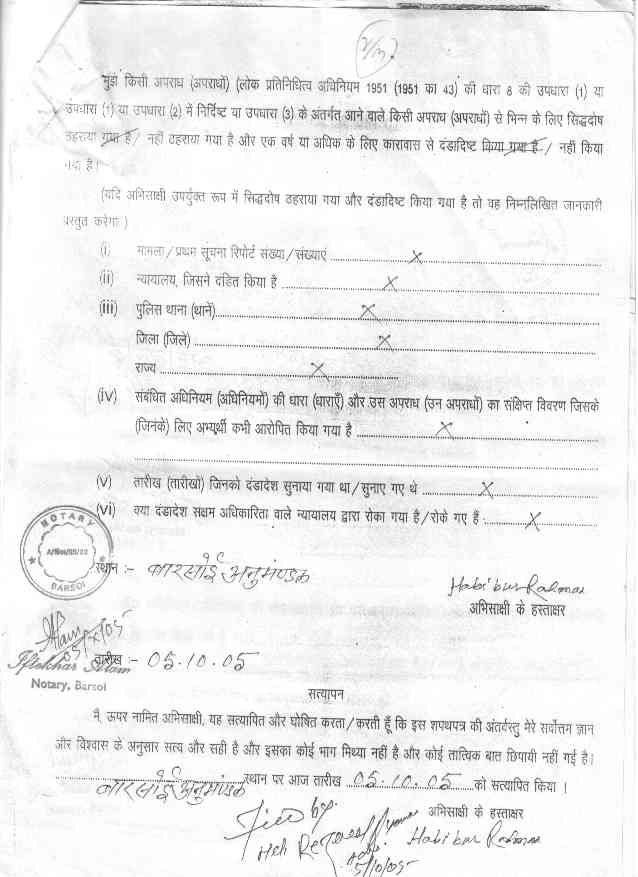 मुझे किसी अपराध (अपराधों) (लोक प्रतिनिधित्व अधिनियम 1951 (1951 का 43) की धारा 8 की उपधारा (1) या
उपधारा (1) या उपधारा (2) में निर्दिष्ट या उपधारा (3) के अंतर्गत आने वाले किसी अपराध (अपराधों) से भिन्न के लिए सिद्धदोष
ठहराया गया है / नहीं ठहराया गया है और एक वर्ष या अधिक के लिए कारावास से दंडादिष्ट किया गया है / नहीं किया
गया है।
(यदि अभिसाक्षी उपर्युक्त रूप में सिद्धदोष ठहराया गया और दंडादिष्ट किया गया है तो वह निम्नलिखित जानकारी
प्रस्तुत करेगा )
(i) मामला / प्रथम सूचना रिपोर्ट संख्या / संख्याएं ........ X ........
(ii) न्यायालय, जिसने दंडित किया है ........ X ........
(iii) पुलिस थाना (थानें)........ X ........
जिला (जिले) ........ X ........
राज्य ........ X ........
(iv) संबंधित अधिनियम (अधिनियमों) की धारा (धाराएँ) और उस अपराध (उन अपराधों) का संक्षिप्त विवरण जिसके
(जिनके) लिए अभ्यर्थी कभी आरोपित किया गया है ........ X ........
(v) तारीख (तारीखों) जिनको दंडादेश सुनाया गया था / सुनाए गए थे ........ X ........
(vi) क्या दंडादेश सक्षम अधिकारिता वाले न्यायालय द्वारा रोका गया है / रोके गए हैं : ........ X ........
NOTARY
BARSOI
स्थान :- बारसोई अनुमण्डल
Habibur Rahman
अभिसाक्षी के हस्ताक्षर
Iftekhar Alam
Notary, Barsoi
तारीख :- 05.10.05
सत्यापन
मैं, ऊपर नामित अभिसाक्षी, यह सत्यापित और घोषित करता / करती हूँ कि इस शपथपत्र की अंतर्वस्तु मेरे सर्वोत्तम ज्ञान
और विश्वास के अनुसार सत्य और सही है और इसका कोई भाग मिथ्या नहीं है और कोई तात्विक बात छिपायी नहीं गई है।
बारसोई अनुमण्डल स्थान पर आज तारीख 05.10.05 को सत्यापित किया ।
अभिसाक्षी के हस्ताक्षर
Habibur Rahman
5/10/05